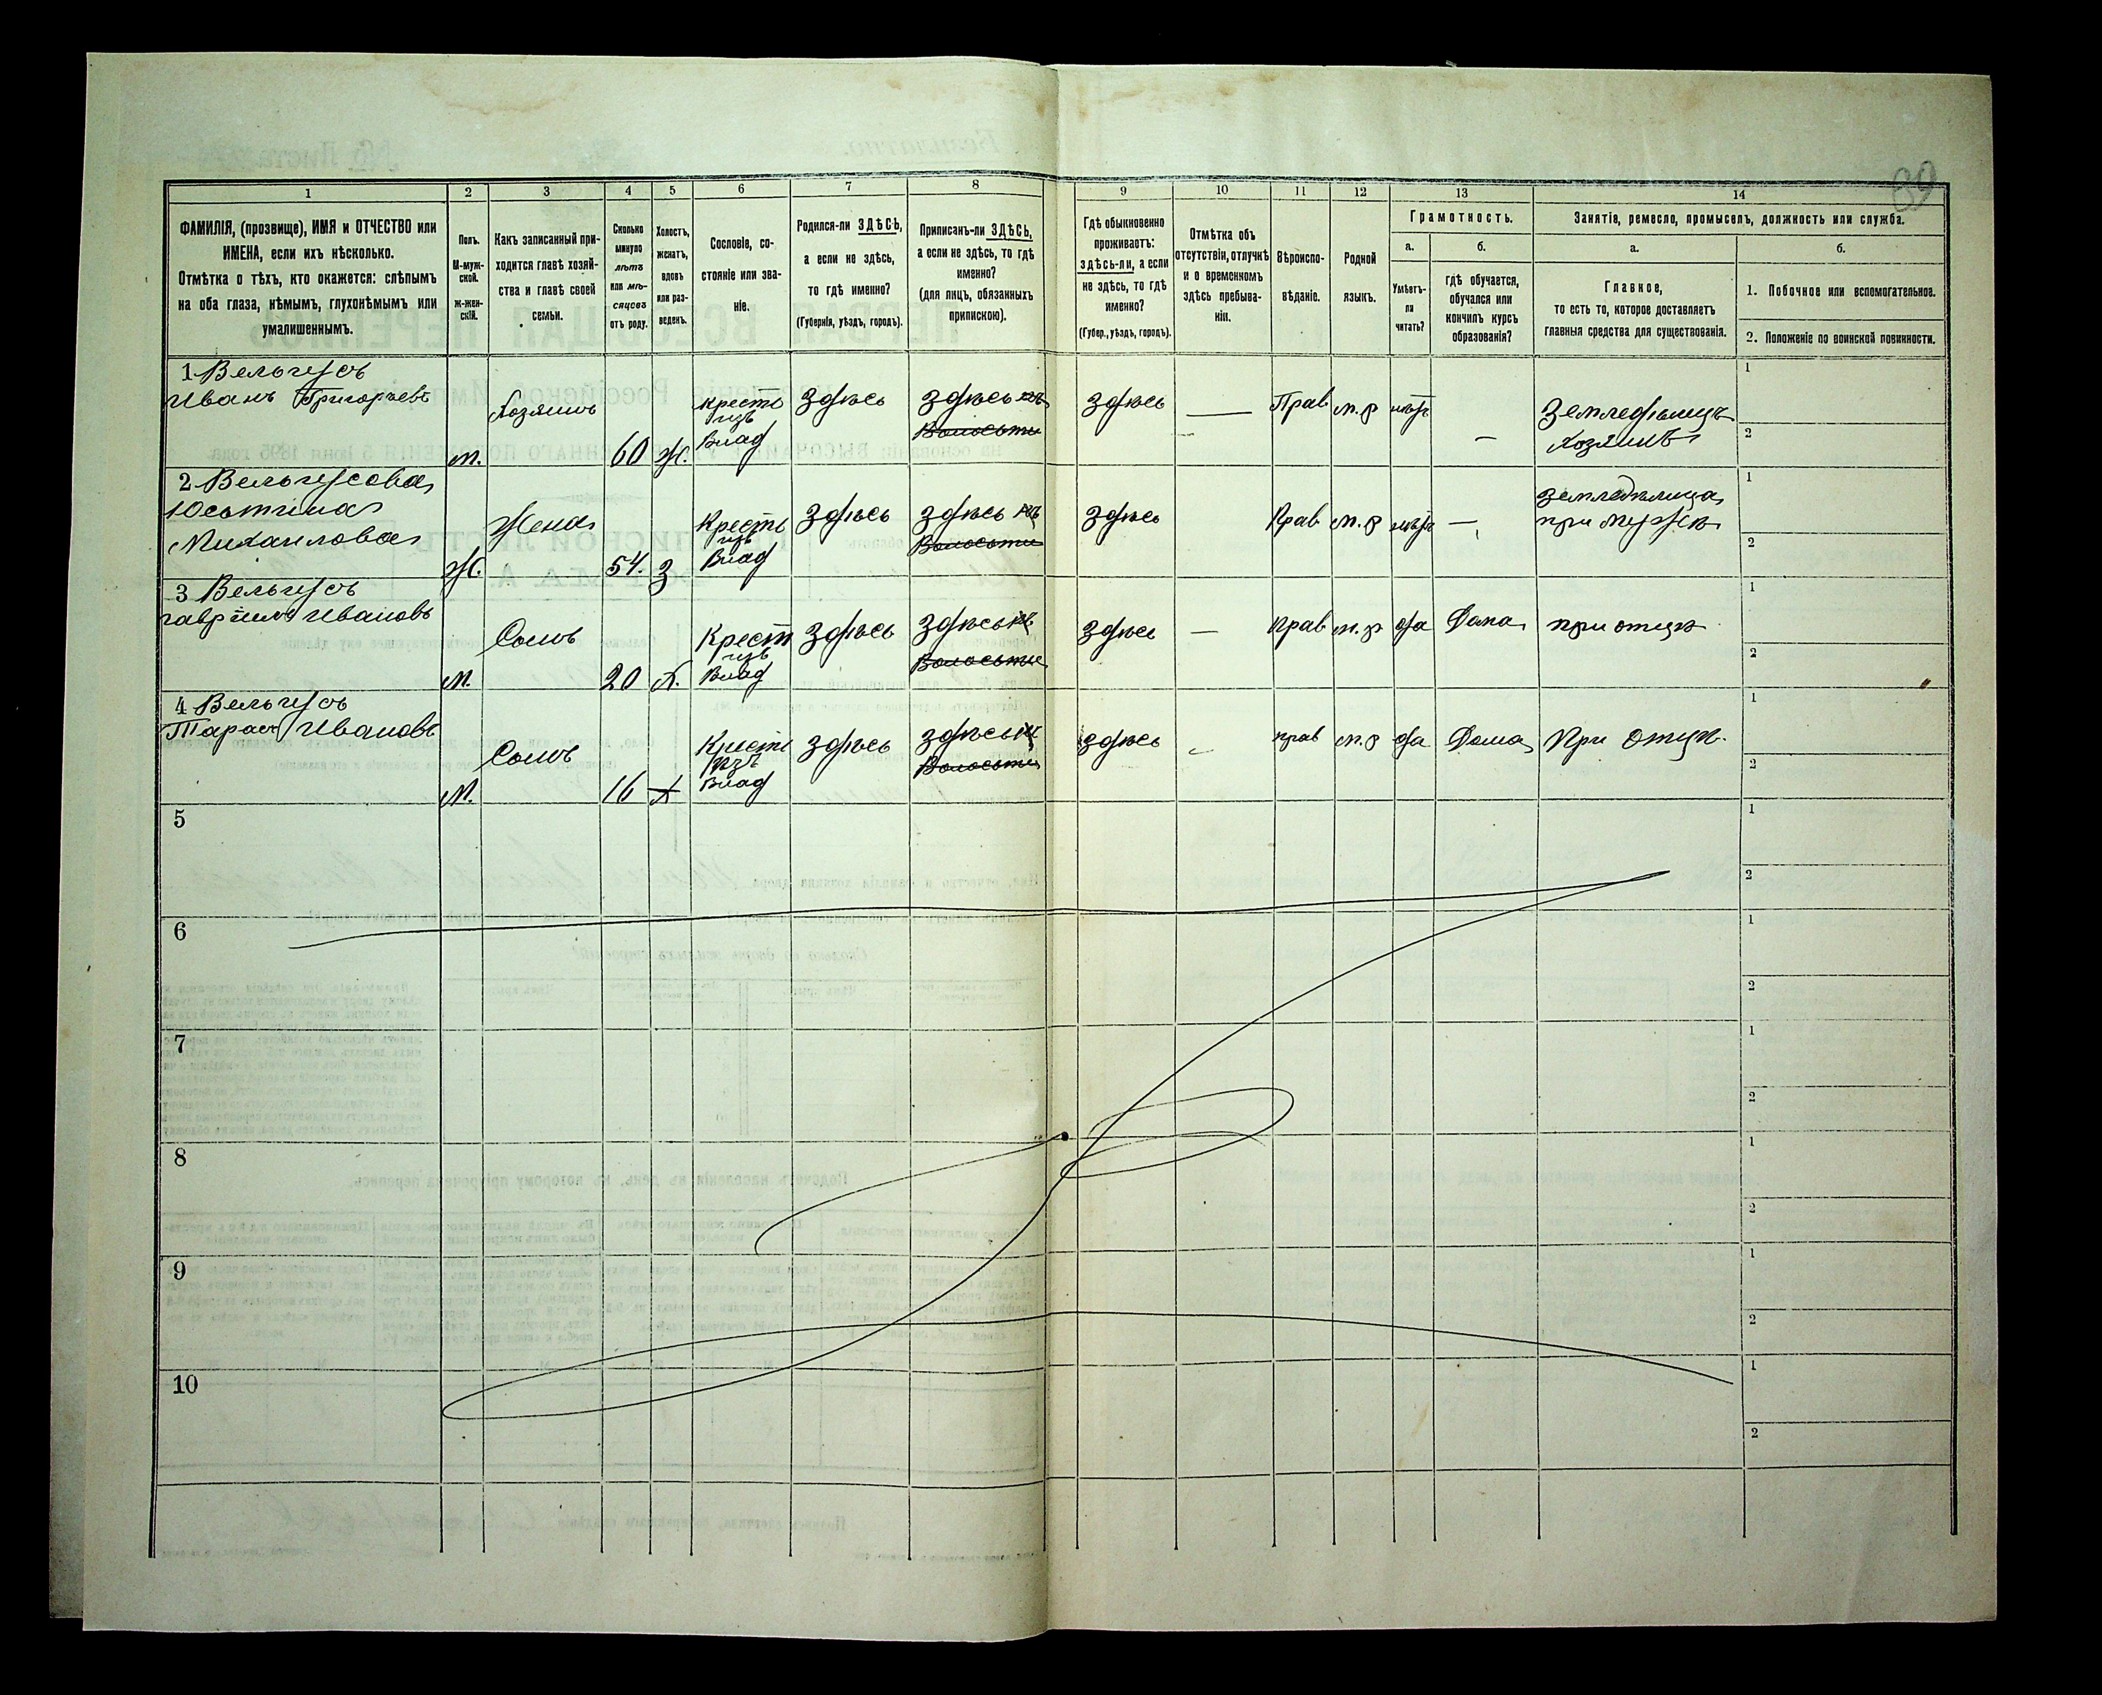 89
1
2
3
4
5
6
7
8
9
10
11
12
13
14
ФАМИЛІЯ, (прозвище), ИМЯ и ОТЧЕСТВО или
ИМЕНА, если ихъ нѣсколько.
Отмѣтка о тѣхъ, кто окажется: слѣпымъ
на оба глаза, нѣмымъ, глухонѣмымъ или
умалишеннымъ.
Полъ.
М-муж-
ской.
ж-жен-
скій.
Какъ записанный при-
ходится главѣ хозяй-
ства и главѣ своей
семьи.
Сколько
минуло
лѣтъ
или мѣ-
сяцевъ
отъ роду.
Холостъ,
женатъ,
вдовъ
или раз-
веденъ.
Сословіе, со-
стояніе или зва-
ніе.
Родился-ли ЗДѢСЬ,
а если не здѣсь,
то гдѣ именно?
(Губернія, уѣздъ, городъ).
Приписанъ-ли ЗДѢСЬ,
а если не здѣсь, то гдѣ
именно?
(для лицъ, обязанныхъ
припискою).
Гдѣ обыкновенно
проживаетъ:
здѣсь-ли, а если
не здѣсь, то гдѣ
именно?
(Губер., уѣздъ, городъ).
Отмѣтка объ
отсутствіи, отлучкѣ
и о временномъ
здѣсь пребыва-
ніи.
Вѣроиспо-
вѣданіе.
Родной
языкъ.
Грамотность.
а.
Умѣетъ-
ли
читать?
б.
гдѣ обучается,
обучался или
кончилъ курсъ
образованія?
Занятіе, ремесло, промыселъ, должность или служба.
а.
Главное,
то есть то, которое доставляетъ
главныя средства для существованія.
б.
1. Побочное или вспомогательное.
2. Положеніе по воинской повинности.
1 Вельгусъ
Иванъ Григорьевъ
м.
Хозяинъ
60
Ж.
Крестьян
изъ
Влад
здѣсь
здѣсь въ
Волости
здѣсь
—
Прав
м.р
нѣтъ
—
Земледѣлецъ
Хозяинъ
1
2
2 Вельгусова
Юстина
Михайлова
Ж.
Жена
54.
З
Крестьян
изъ
Влад
здѣсь
здѣсь въ
Волости
здѣсь
Прав
м.р
нѣтъ
—
Земледѣлица
при мужѣ
1
2
3 Вельгусъ
Гавріилъ Ивановъ
М.
Сынъ
20
Х.
Крестьян
изъ
Влад
здѣсь
здѣсь въ
Волости
здѣсь
—
Прав
м.р
да
Дома
при отцѣ
1
2
4 Вельгусъ
Тарасъ Ивановъ
М.
Сынъ
16
Х
Крестьян
изъ
Влад
здѣсь
здѣсь въ
Волости
здѣсь
—
прав
м.р
да
Дома
При отцѣ
1
2
5
1
2
6
1
2
7
1
2
8
1
2
9
1
2
10
1
2